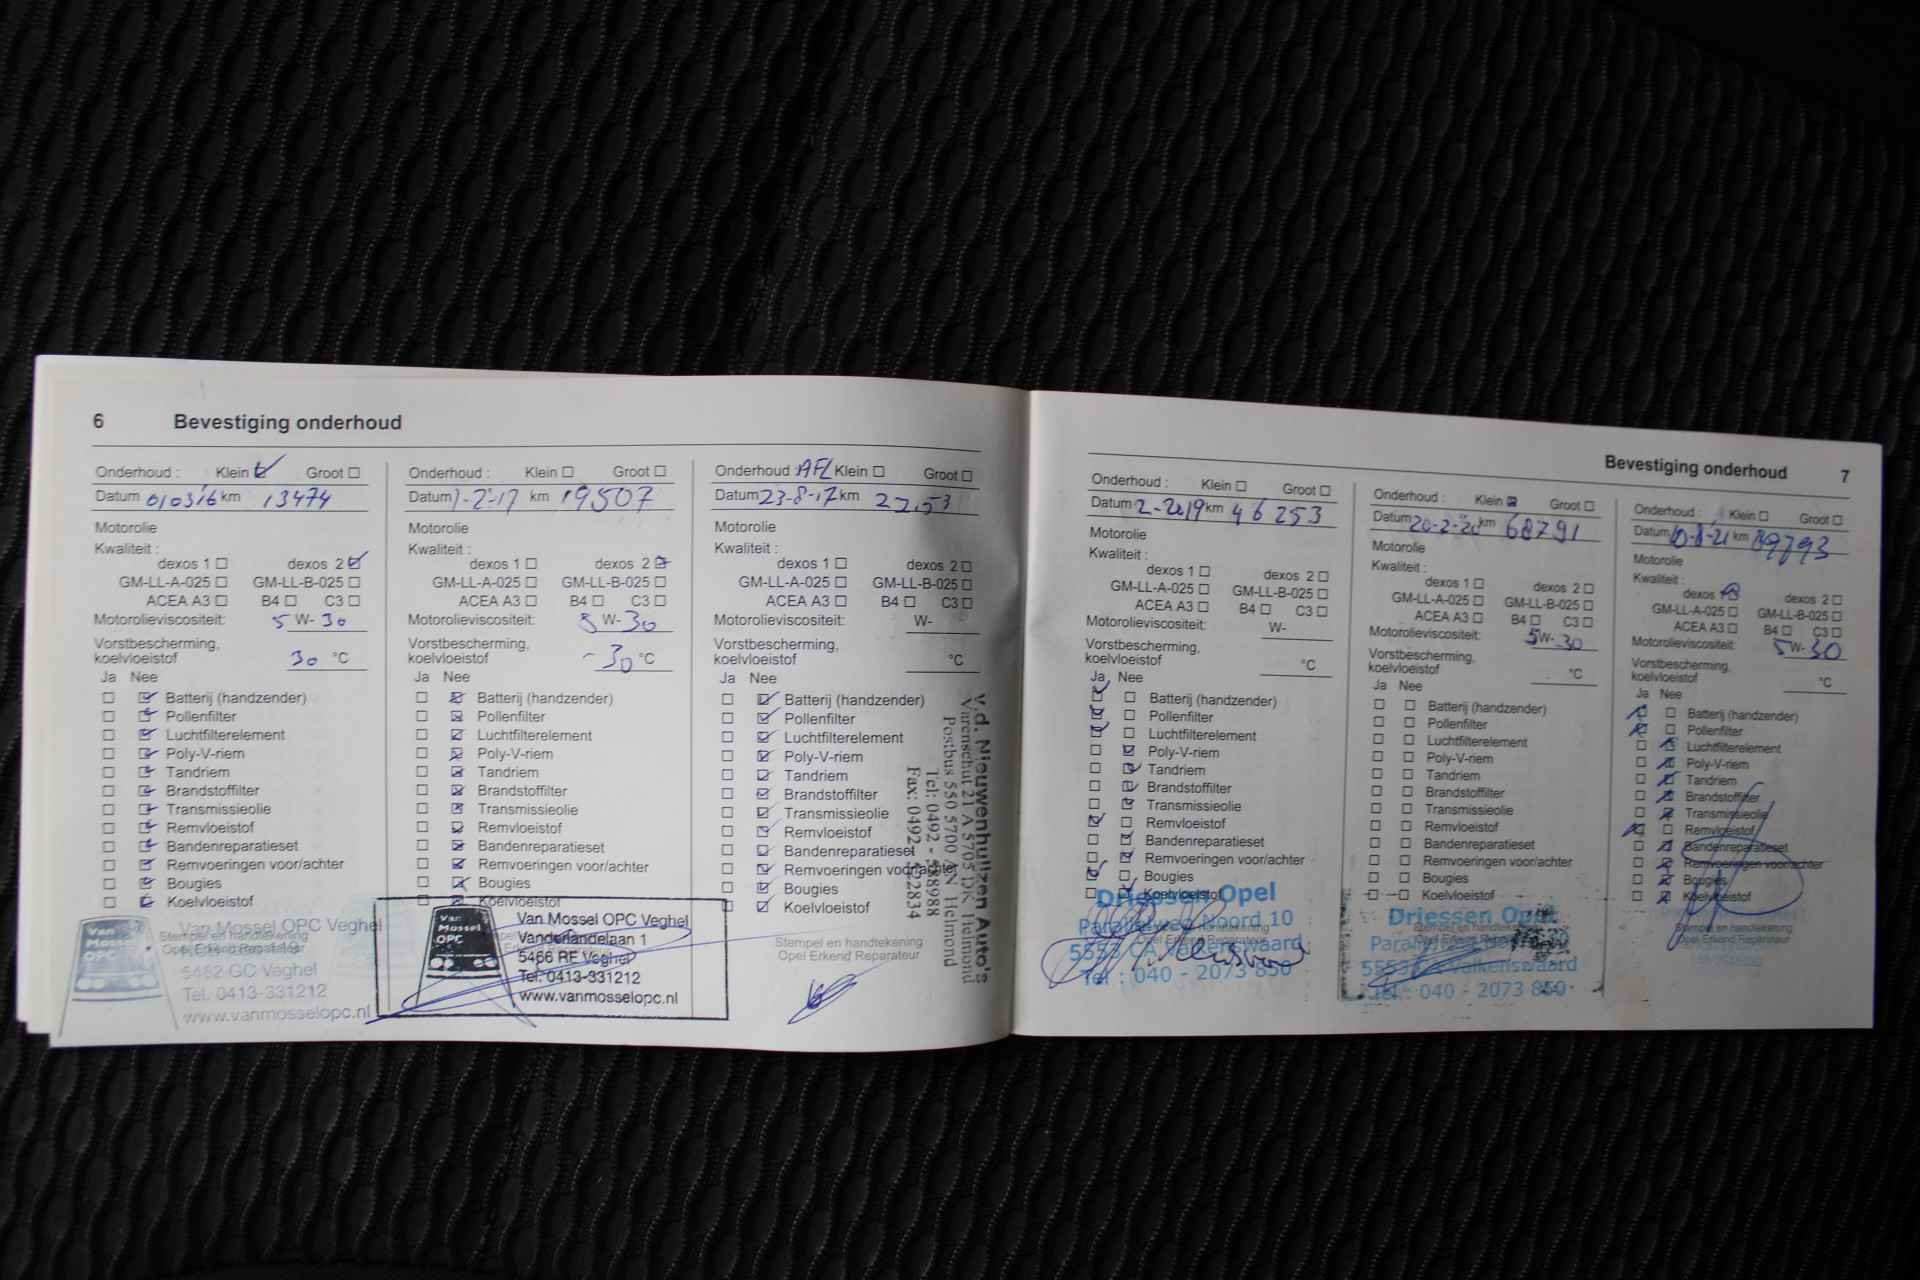 6 Bevestiging onderhoud
Onderhoud : Klein Groot
Datum 010316 km 13474
Motorolie
Kwaliteit :
dexos 1 dexos 2
GM-LL-A-025 GM-LL-B-025
ACEA A3 B4 C3
Motorolieviscositeit: 5 W- 30
Vorstbescherming,
koelvloeistof 30 °C
Ja Nee
Batterij (handzender)
Pollenfilter
Luchtfilterelement
Poly-V-riem
Tandriem
Brandstoffilter
Transmissieolie
Remvloeistof
Bandenreparatieset
Remvoeringen voor/achter
Bougies
Koelvloeistof
Van Mossel OPC
Van Mossel OPC Veghel
Stempel en handtekening
Opel Erkend Reparateur
5462 GC Veghel
Tel. 0413-331212
www.vanmosselopc.nl
Onderhoud : Klein Groot
Datum 1-2-17 km 19507
Motorolie
Kwaliteit :
dexos 1 dexos 2
GM-LL-A-025 GM-LL-B-025
ACEA A3 B4 C3
Motorolieviscositeit: 5 W- 30
Vorstbescherming,
koelvloeistof -30 °C
Ja Nee
Batterij (handzender)
Pollenfilter
Luchtfilterelement
Poly-V-riem
Tandriem
Brandstoffilter
Transmissieolie
Remvloeistof
Bandenreparatieset
Remvoeringen voor/achter
Bougies
Koelvloeistof
Van
Mossel
OPC
Van Mossel OPC Veghel
Vanderlandelaan 1
5466 RF Veghel
Tel. 0413-331212
www.vanmosselopc.nl
Onderhoud : AFL Klein Groot
Datum 23-8-17 km
Motorolie
Kwaliteit :
dexos 1 dexos 2
GM-LL-A-025 GM-LL-B-025
ACEA A3 B4 C3
Motorolieviscositeit: W-
Vorstbescherming,
koelvloeistof °C
Ja Nee
Batterij (handzender)
Pollenfilter
Luchtfilterelement
Poly-V-riem
Tandriem
Brandstoffilter
Transmissieolie
Remvloeistof
Bandenreparatieset
Remvoeringen voor/achter
Bougies
Koelvloeistof
Stempel en handtekening
Opel Erkend Reparateur
v.d. Nieuwenhuijzen Auto's
Varenschut 21 A 5705 DK Helmond
Postbus 550 5700 AN Helmond
Tel: 0492 - 588988
Fax: 0492 - 522834
Bevestiging onderhoud 7
Onderhoud : Klein Groot
Datum 2-2019 km 46253
Motorolie
Kwaliteit :
dexos 1 dexos 2
GM-LL-A-025 GM-LL-B-025
ACEA A3 B4 C3
Motorolieviscositeit: W-
Vorstbescherming,
koelvloeistof °C
Ja Nee
Batterij (handzender)
Pollenfilter
Luchtfilterelement
Poly-V-riem
Tandriem
Brandstoffilter
Transmissieolie
Remvloeistof
Bandenreparatieset
Remvoeringen voor/achter
Bougies
Koelvloeistof
Driessen Opel
Parallelweg Noord 10
Opel Erkend Reparateur
5553 CA Valkenswaard
Tel : 040 - 2073 850
Onderhoud : Klein Groot
Datum 20-2-20 km 68791
Motorolie
Kwaliteit :
dexos 1 dexos 2
GM-LL-A-025 GM-LL-B-025
ACEA A3 B4 C3
Motorolieviscositeit: 5 W- 30
Vorstbescherming,
koelvloeistof °C
Ja Nee
Batterij (handzender)
Pollenfilter
Luchtfilterelement
Poly-V-riem
Tandriem
Brandstoffilter
Transmissieolie
Remvloeistof
Bandenreparatieset
Remvoeringen voor/achter
Bougies
Koelvloeistof
Driessen Opel
5553 CA Valkenswaard
Tel : 040 - 2073 850
Onderhoud : Klein Groot
Datum 10-8-21 km 89793
Motorolie
Kwaliteit :
dexos 1 dexos 2
GM-LL-A-025 GM-LL-B-025
ACEA A3 B4 C3
Motorolieviscositeit: 5 W- 30
Vorstbescherming,
koelvloeistof °C
Ja Nee
Batterij (handzender)
Pollenfilter
Luchtfilterelement
Poly-V-riem
Tandriem
Brandstoffilter
Transmissieolie
Remvloeistof
Bandenreparatieset
Remvoeringen voor/achter
Bougies
Koelvloeistof
Stempel en handtekening
Opel Erkend Reparateur